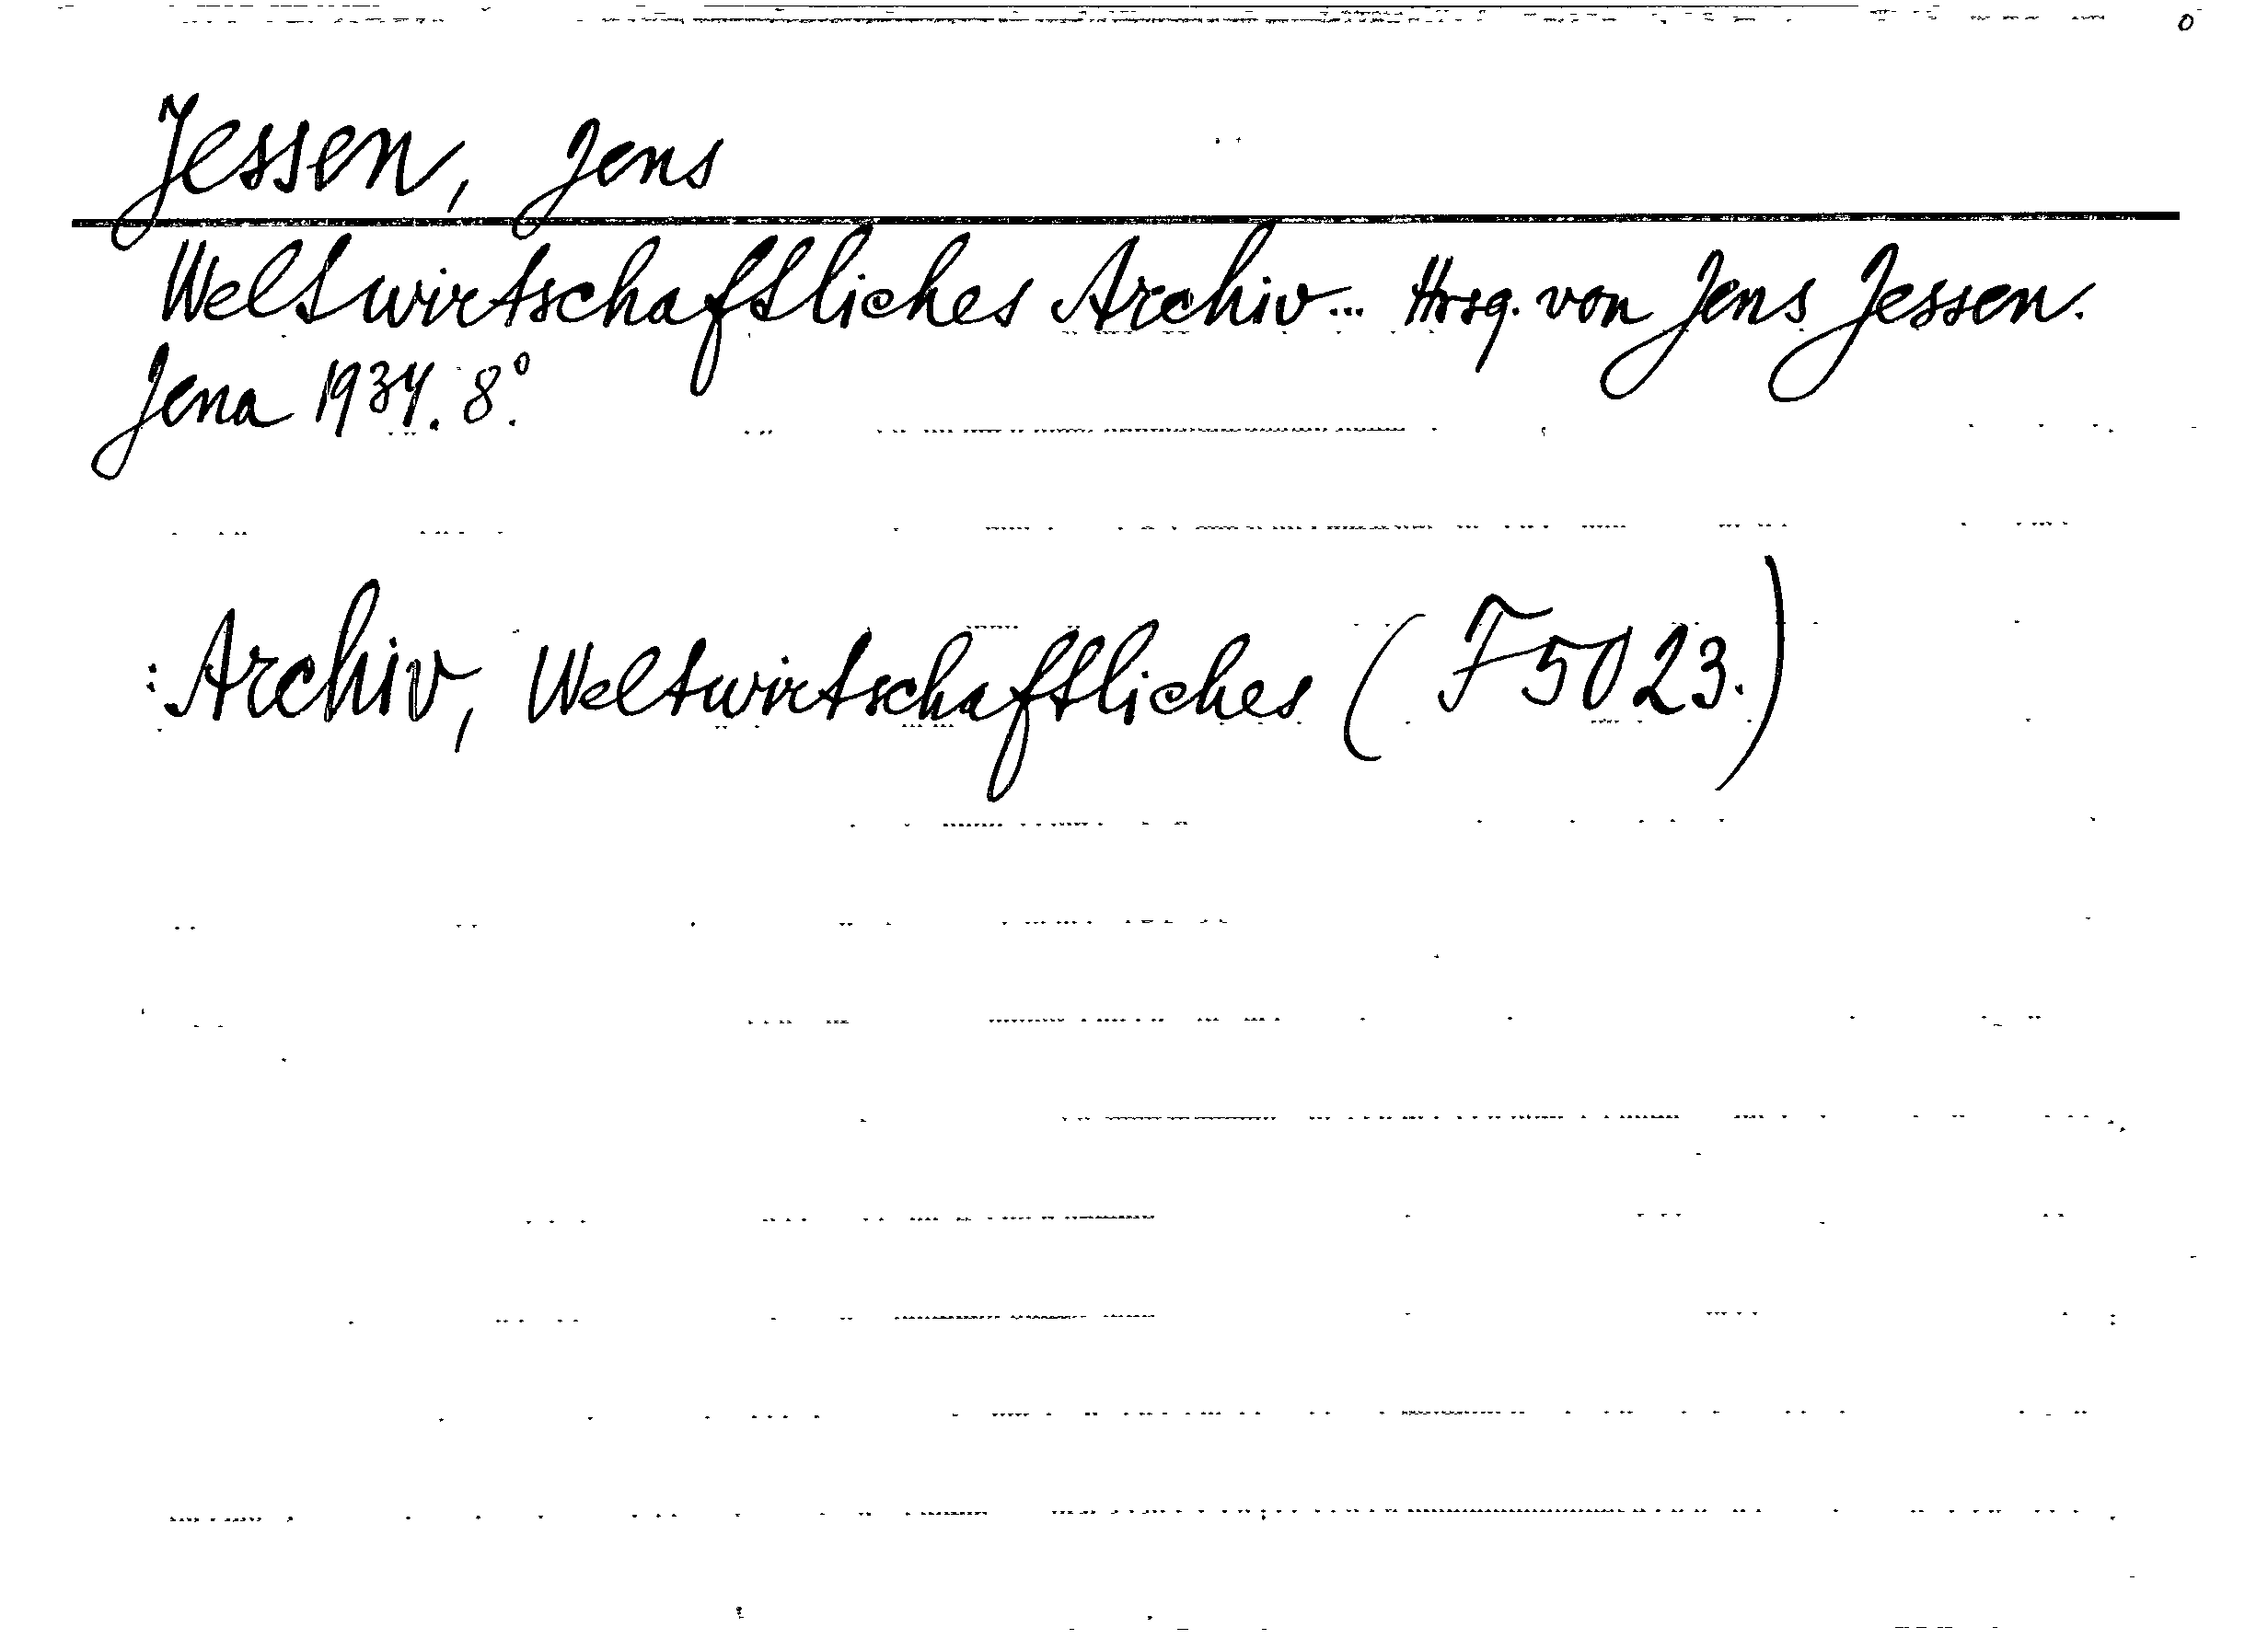 Jessen, Jens
Weltwirtschaftliches Archiv... Hrsg. von Jens Jessen.
Jena 1934. 8°.
: Archiv, Weltwirtschaftliches (F 5023.)